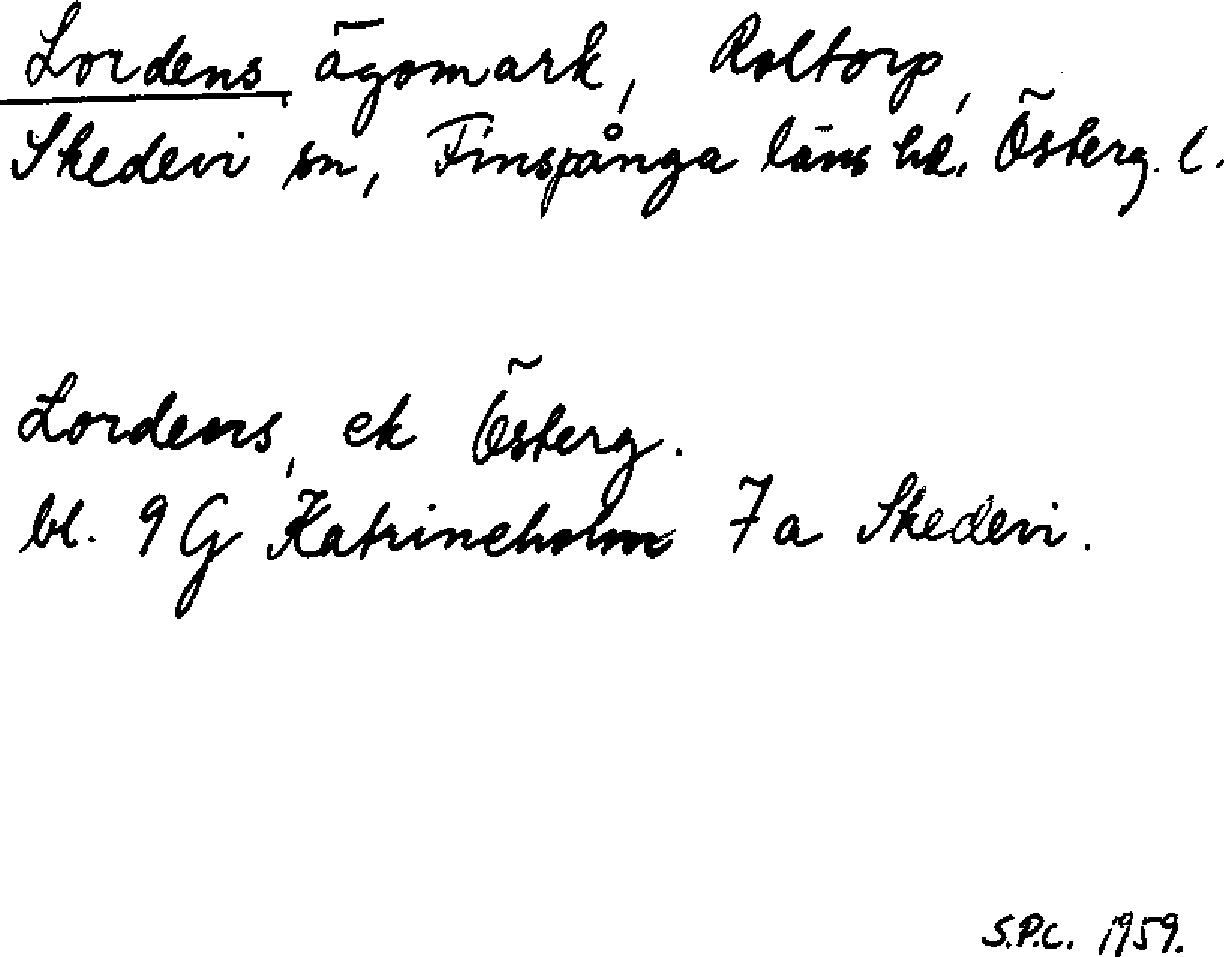 Lordens, ägomark, Roltorp,
Skedevi sn, Finspånga läns hd. Österg. l.
Lordens, ek Österg.
bl. 9G Katrineholm 7a Skedevi.
S.P.C. 1959.